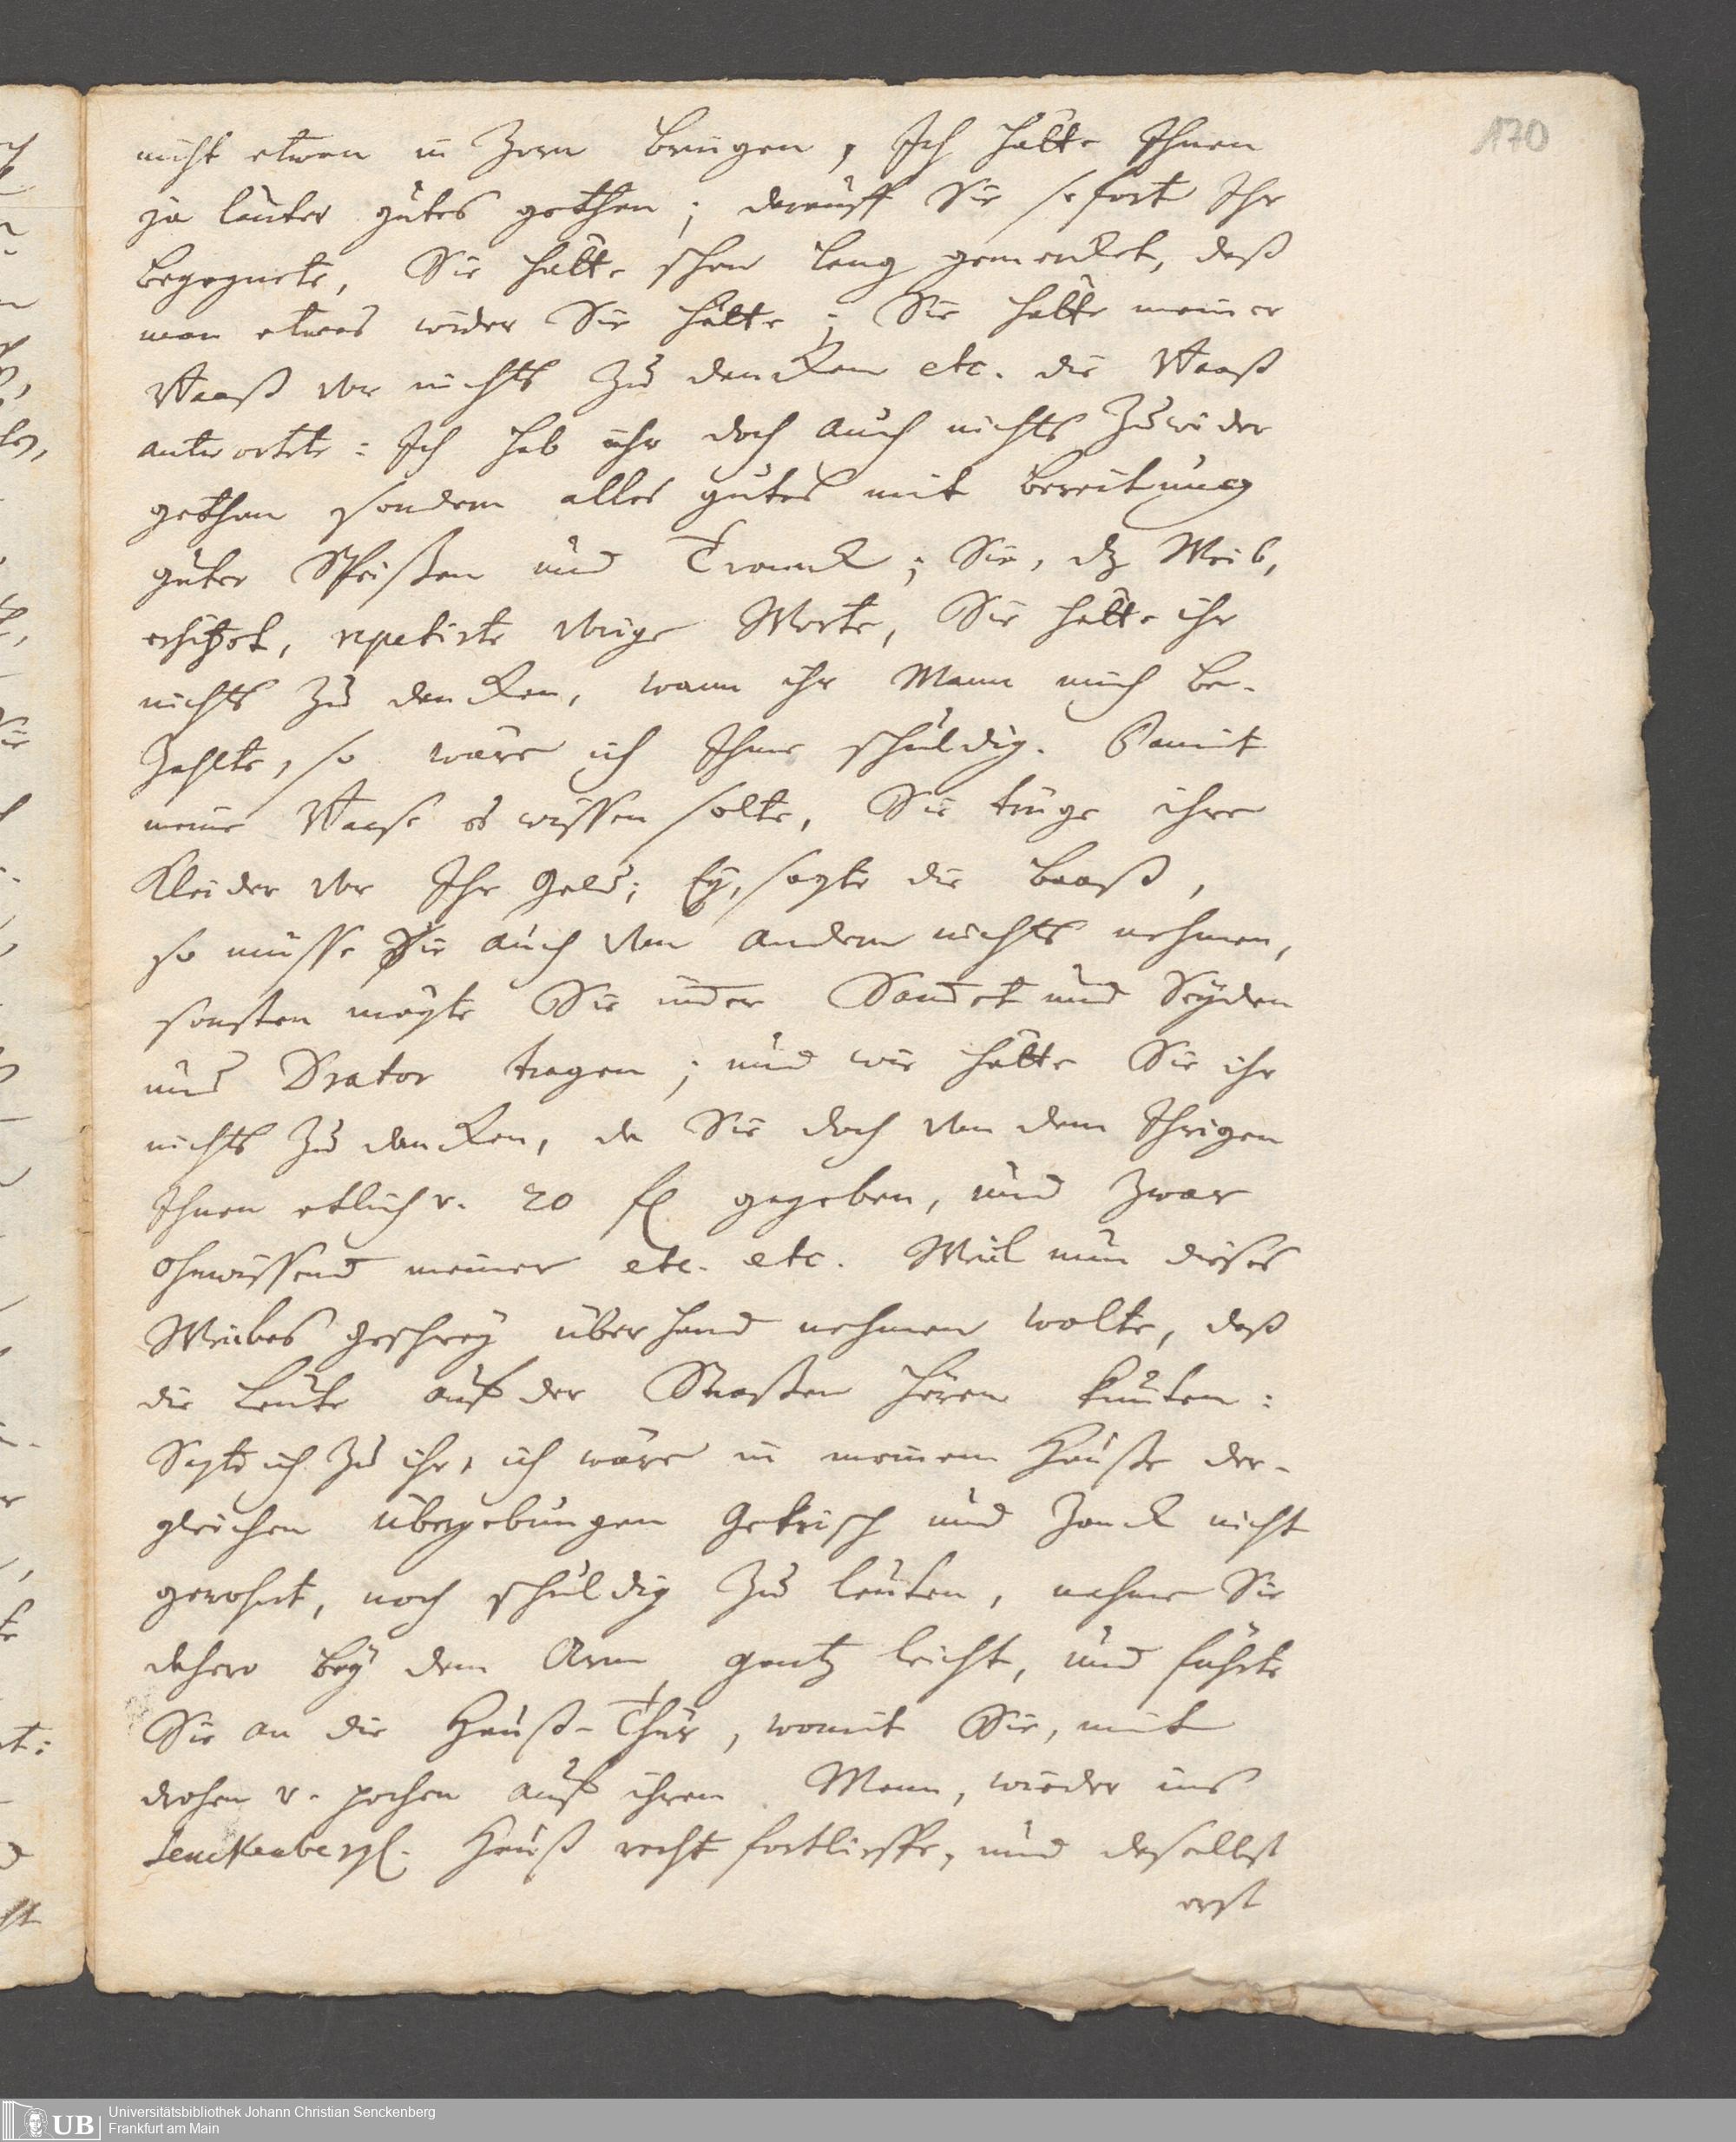 170
nicht etwan in Zorn bringen, Ich hätte Ihnen
ja lauter gutes gethan; darauff Sie sofort Ihr
begegnete, Sie hätte schon lang gemercket, daß
man etwas wider Sie hätte; Sie hätte meiner
Baaß vor nichts zu dencken etc. die Baaß
antwortete: Ich hab ihr doch auch nichts zuwider
gethan sondern alles gutes mit bereitung
guter Speißen und Tranck; Sie, dz Weib,
erhitzet, repetirte vorige Worte, Sie hätte ihr
nichts zu dancken, wann ihr Mann mich be-
zahlte, so wäre ich Ihme schuldig. Damit
meine Baase es wissen solte, Sie trüge ihre
Kleider vor Ihr Geld; Ey, sagte die Baaß,
so müsse Sie auch von andern nichts nehmen,
sonsten mögte Sie und Seyden
und tragen; und wie hätte Sie ihr
nichts zu dancken, da Sie doch von dem Ihrigen
Ihnen etlich u. 20 fl gegeben, und zwar
ohnwissend meiner etc. etc. Weil nun dieses
Weibes geschrey überhand nehmen wolte, daß
die Leute auf der Straßen hören kunten:
Sagte ich zu ihr, ich wäre in meinem Hauße der-
gleichen Gekrisch und Zanck nicht
gewohnt, noch schuldig zu leiden, nahme Sie
dahero bey dem Arm gantz leicht, und führte
Sie an die Hauß-Thür, womit Sie, mit
drohen u. pochen auf ihren Mann, wieder ins
Senckenbergl. Hauß recht fortlieffe, und daselbst
erst
UB
Universitätsbibliothek Johann Christian Senckenberg
Frankfurt am Main